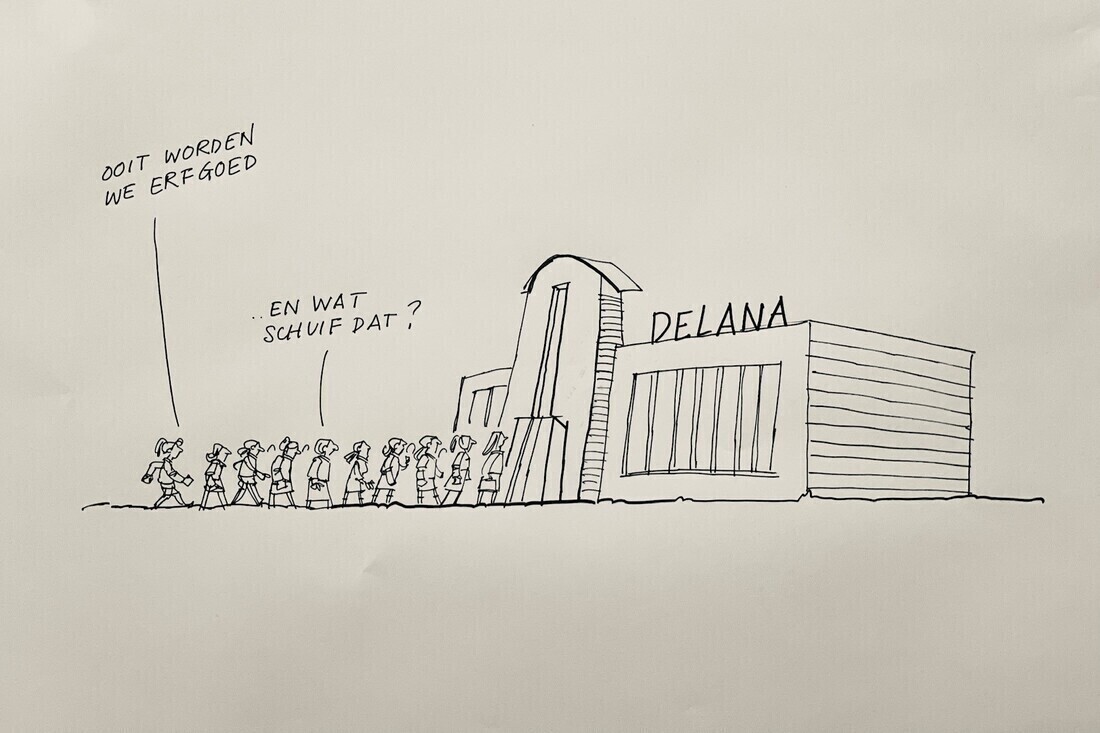 OOIT WORDEN
WE ERFGOED
..EN WAT
SCHUIF DAT?
DELANA